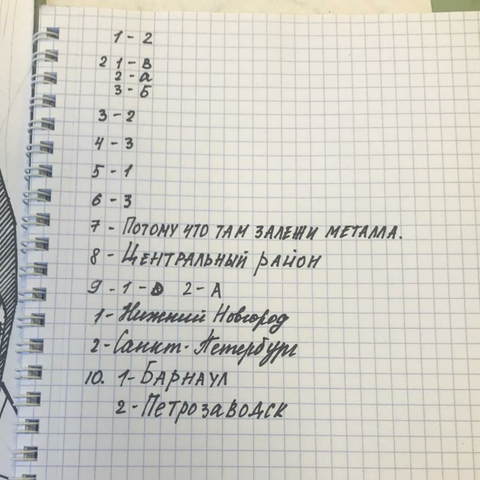 1 - 2
2 1 - В
2 - а
3 - Б
3 - 2
4 - 3
5 - 1
6 - 3
7 - Потому что там залежи металла.
8 - Центральный район
9. 1 - 2 - А
1 - Нижний Новгород
2 - Санкт-Петербург
10. 1 - Барнаул
2 - Петрозаводск